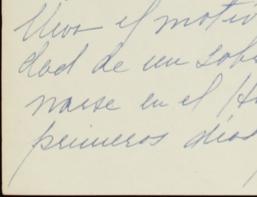 llevo el motiv
dad de un sobr
narse en el H
primeros días